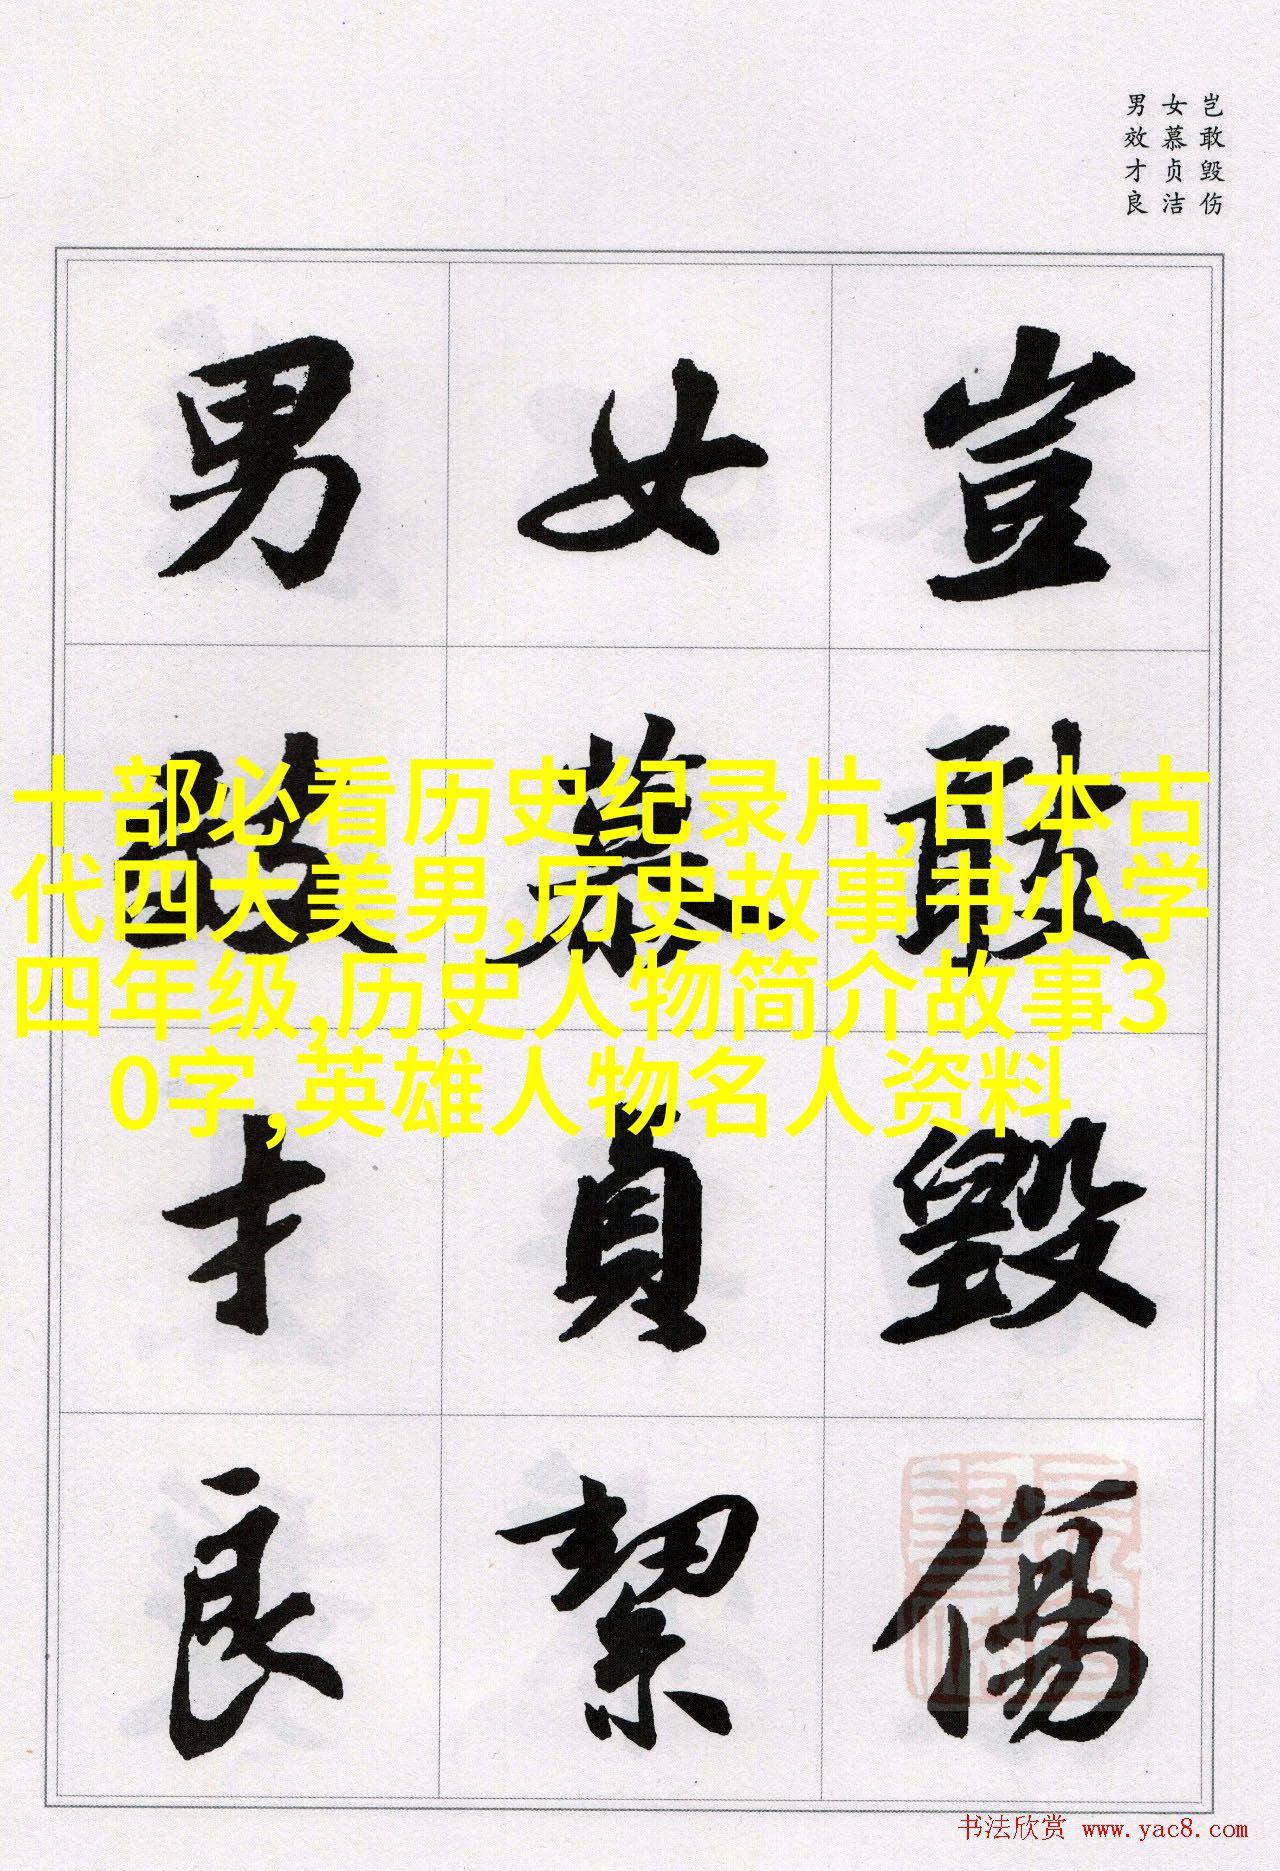 岂敢毁伤
女慕贞洁
男效才良
豈敢毀傷
女慕貞絜
男效才良
十部必看历史纪录片,日本古
代四大美男,历史故事书小学
四年级,历史人物简介故事3
0字,英雄人物名人资料
书法欣赏 www.yac8.com